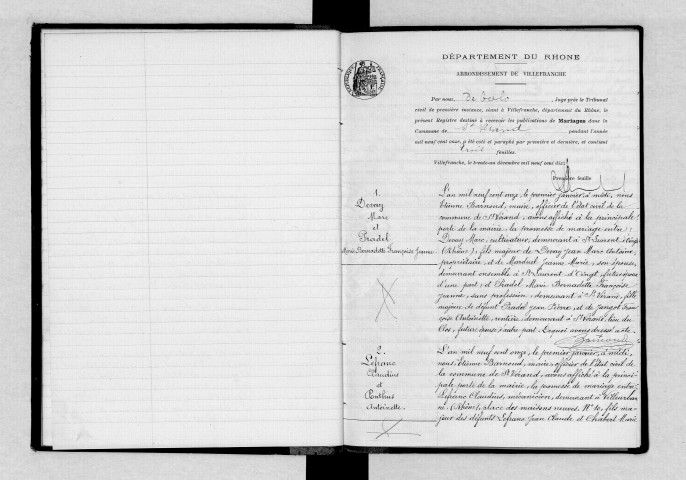 DÉPARTEMENT DU RHONE
ARRONDISSEMENT DE VILLEFRANCHE
Par nous, Juge près le Tribunal
civil de première instance, séant à Villefranche, département du Rhône, le
présent Registre destiné à recevoir les publications de Mariages dans la
Commune de St Vérand pendant l'année
mil neuf cent onze, a été coté et paraphé par première et dernière, et contient
trois feuilles.
Villefranche, le trente-un décembre mil neuf cent dix.
Première feuille
1.
Devay
Marc
et
Pradel
Marie Bernadette Françoise Jeanne
L'an mil neuf cent onze, le premier janvier, à midi, nous
Etienne Barnoud, maire, officier de l'état civil de la
commune de St Vérand, avons affiché à la principale
porte de la mairie, la promesse de mariage entre:
Devay Marc, cultivateur, demeurant à St Laurent d'Oingt
(Rhône), fils majeur de Devay Jean Marc
propriétaire, et de Jeanne Marie, son épouse,
demeurant ensemble à St Laurent d'Oingt, futur époux
d'une part; et Pradel Marie Bernadette Françoise
Jeanne, sans profession, demeurant à St Vérand, fille
majeure de défunt Pradel Jean Pierre et de Fran-
çoise Antoinette, rentière, demeurant à St Vérand, lieu du
Clos, future épouse d'autre part. En quoi avons dressé acte.
Barnoud
2.
Lefranc
Claudius
et
Ponthus
Antoinette.
L'an mil neuf cent onze, le premier janvier, à midi,
nous Etienne Barnoud, maire, officier de l'état civil de
la commune de St Vérand, avons affiché à la princi-
pale porte de la mairie, la promesse de mariage entre
Lefranc Claudius, mécanicien, demeurant à Villeurban-
ne (Rhône), place des maisons neuves, No 10, fils ma-
jeur des défunts Lefranc Jean Claude et Chabert Marie